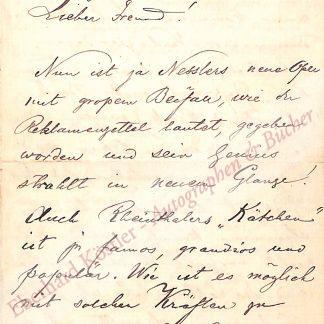 Lieber Freund!
Nun ist ja Nesslers neue Oper
mit großem Beifall, wie der
Reklamenzettel lautet, gegeben
worden und sein Genius
strahlt in neuem Glanze!
Auch Rheinthalers „Kätchen"
ist ja famos, grandios und
populär. Wie ist es möglich
mit solcher Kräften zu
Eberhard Köstler - Autographen & Bücher